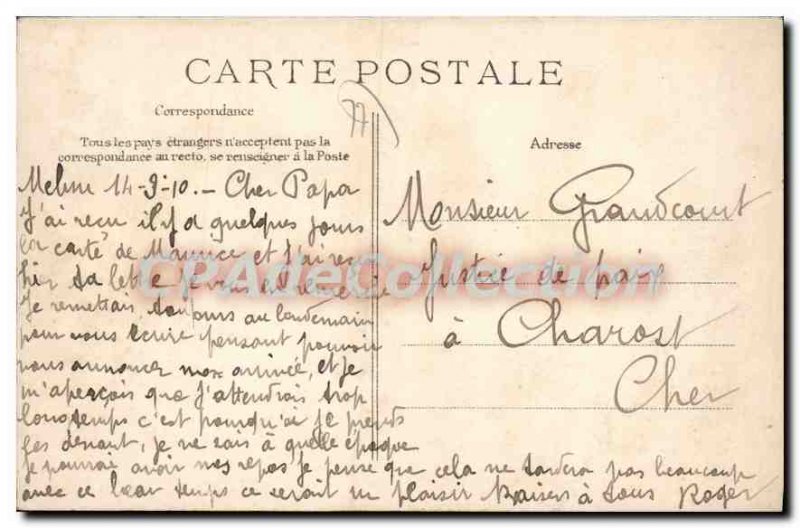 CARTE POSTALE
77
Correspondance
Tous les pays étrangers n'acceptent pas la
correspondance au recto, se renseigner à la Poste
Adresse
Melun 14-9-10.- Cher Papa
J'ai reçu il y a quelques jours
la carte de Maurice et j'ai reçu
hier ta lettre je vous en remercie
Je remettais toujours au lendemain
pour vous écrire pensant pouvoir
vous annoncer mon arrivée, et je
m'aperçois que j'attendrais trop
longtemps c'est pourquoi je prends
les devant, je ne sais à quelle époque
je pourrai avoir mes repos je pense que cela ne tardera pas beaucoup
avec ce beau temps ce serait un plaisir Baisers à tous Roger
Monsieur Grandcourt
Justice de paix
à Charost
Cher
CPAdeCollection